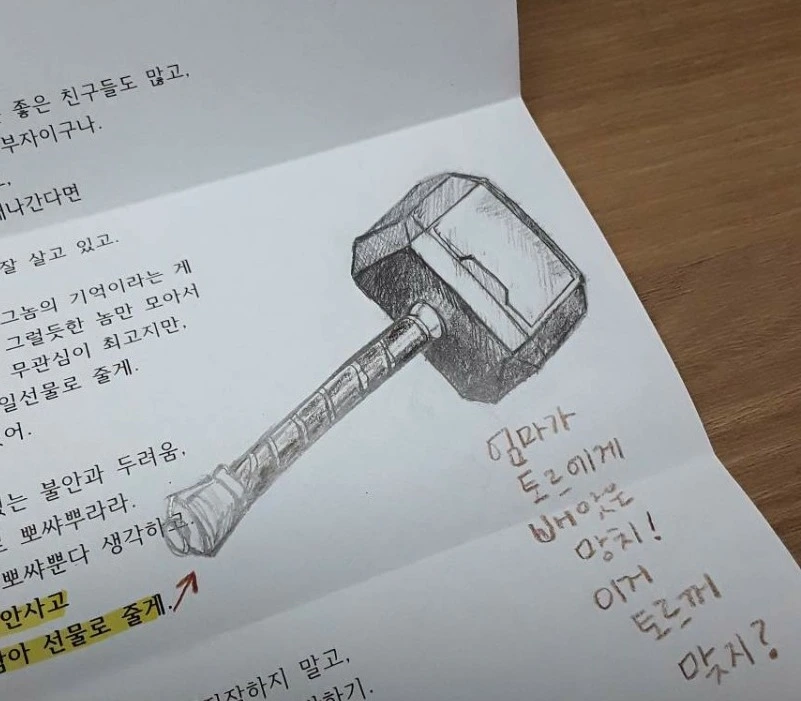 좋은 친구들도 많고,
부자이구나.
나간다면
잘 살고 있고.
그놈의 기억이라는 게
그럴듯한 놈만 모아서
무관심이 최고지만,
일선물로 줄게.
어.
는 불안과 두려움,
뽀쌰뿌라라.
뽀쌰뿐다 생각하고.
안사고
아 선물로 줄게.
엄마가
토르에게
빼앗은
망치!
이거
토르꺼
맞지?
하지 말고,
하기.